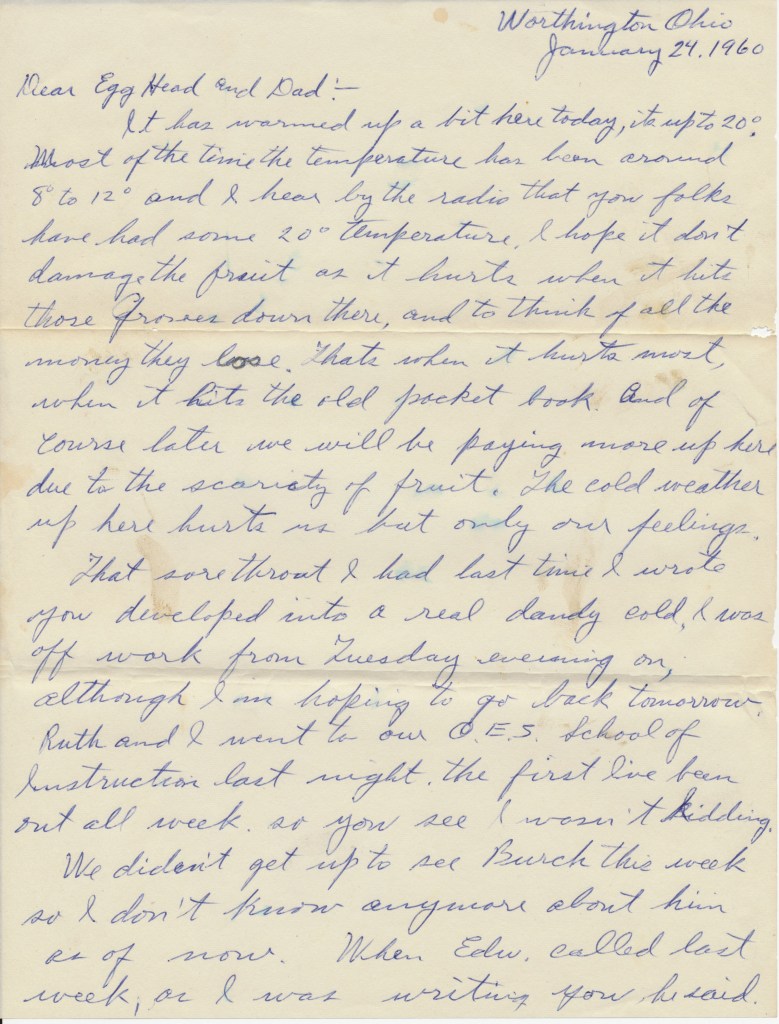 Worthington Ohio
January 24, 1960
Dear Egg Head and Dad:—
It has warmed up a bit here today, its up to 20°.
Most of the time the temperature has been around
8° to 12° and I hear by the radio that you folks
have had some 20° temperature, I hope it don't
damage the fruit as it hurts when it hits
those Groves down there, and to think of all the
money they loose. Thats when it hurts most,
when it hits the old pocket book. And of
course later we will be paying more up here
due to the scaricty of fruit. The cold weather
up here hurts us but only our feelings.
That sore throat I had last time I wrote
you developed into a real dandy cold, I was
off work from Tuesday evening on,
although I am hoping to go back tomorrow.
Ruth and I went to our O.E.S. School of
Instruction last night. the first I've been
out all week. so you see I wasn't kidding.
We didn't get up to see Burch this week
so I don't know anymore about him
as of now. When Edw. called last
week, as I was writing you he said.